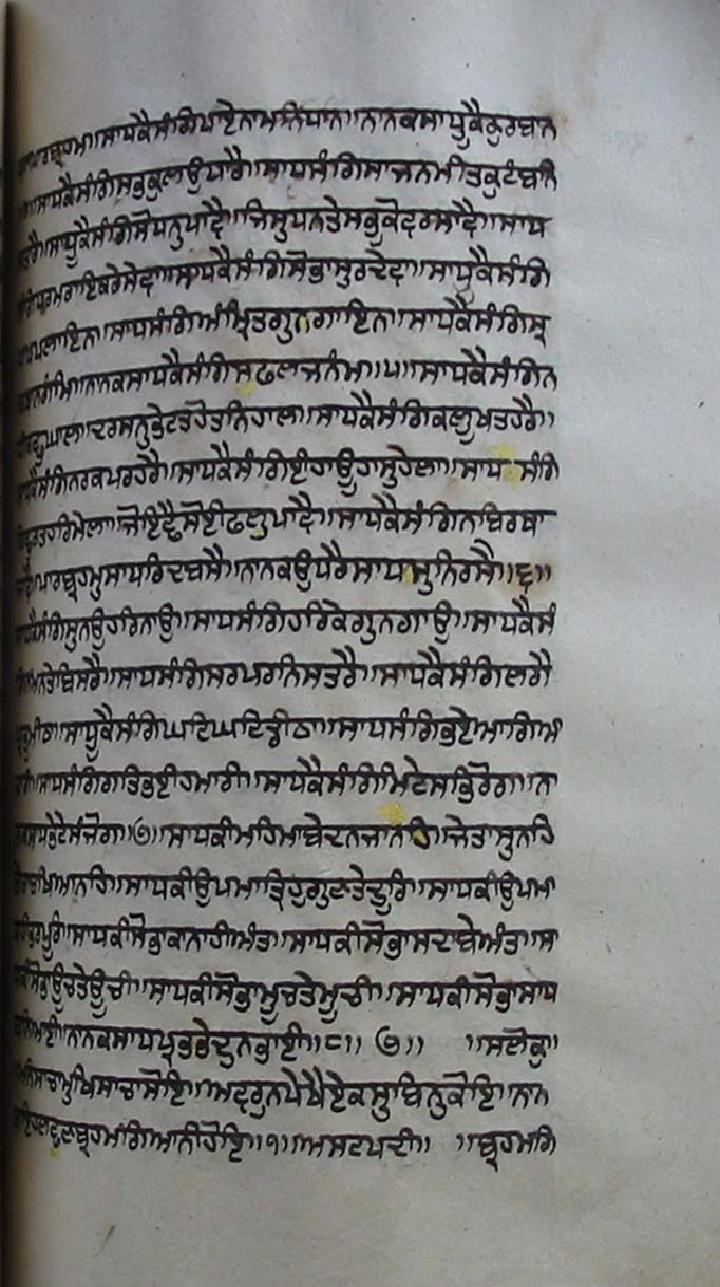 ਪਾਰਬ੍ਰਹਮ॥ ਸਾਧਕੈਸੰਗਿਪਾਏਨਾਮਨਿਧਾਨ॥ ਨਾਨਕਸਾਧੂਕੈਕੁਰਬਾਨ
॥ਸਾਧਕੈਸੰਗਿਸਭਕੁਲਉਧਾਰੈ॥ਸਾਧਸੰਗਿਸਾਜਨਮੀਤਕੁਟੰਬਨਿ
॥ਸਾਧੂਕੈਸੰਗਿਸੋਧਨੁਪਾਵੈ॥ਜਿਸੁਧਨਤੇਸਭੁਕੋਵਰਸਾਵੈ॥ਸਾਧ
ਧਰਮਰਾਇਕਰੇਸੇਵਾ॥ਸਾਧਕੈਸੰਗਿਸੋਭਾਸੁਰਦੇਵਾ॥ਸਾਧੂਕੈਸੰਗਿ
ਪਲਾਇਨ॥ਸਾਧਸੰਗਿਅੰਮ੍ਰਿਤਗੁਨਗਾਇਨ॥ਸਾਧਕੈਸੰਗਿਸ੍ਰ
ਗੰਮਿ॥ਨਾਨਕਸਾਧਕੈਸੰਗਿਸਫਲਜਨੰਮ॥੫॥ਸਾਧਕੈਸੰਗਿਨ
ਘਾਲ॥ਦਰਸਨੁਭੇਟਤਹੋਤਨਿਹਾਲ॥ਸਾਧਕੈਸੰਗਿਕਲੂਖਤਹਰੈ॥
ਕੈਸੰਗਿਨਰਕਪਰਹਰੈ॥ਸਾਧਕੈਸੰਗਿਈਹਾਊਹਾਸੁਹੇਲਾ॥ਸਾਧ ਸੰਗਿ
ਹਰਿਮੇਲਾ॥ਜੋਇਛੈਸੋਈਫਲੁਪਾਵੈ॥ਸਾਧਕੈਸੰਗਿਨਬਿਰਥਾ
ਪਾਰਬ੍ਰਹਮੁਸਾਧਰਿਦਬਸੈ॥ਨਾਨਕਉਧਰੈਸਾਧਸੁਨਿਰਸੈ॥੬॥
ਕੈਸੰਗਿਸੁਨਉਹਰਿਨਾਉ॥ਸਾਧਸੰਗਿਹਰਿਕੇਗੁਨਗਾਉ॥ਸਾਧਕੈਸੰ
ਮਨਤੇਬਿਸਰੈ॥ਸਾਧਸੰਗਿਸਰਪਰਨਿਸਤਰੈ॥ਸਾਧਕੈਸੰਗਿਲਗੈ
ਮੀਠਾ॥ਸਾਧੂਕੈਸੰਗਿਘਟਿਘਟਿਡੀਠਾ॥ਸਾਧਸੰਗਿਭਏਆਗਿਅ
ਸਾਧਸੰਗਿਗਤਿਭਈਹਮਾਰੀ॥ਸਾਧਕੈਸੰਗਿਮਿਟੇਸਭਿਰੋਗ॥ਨਾ
ਸਾਧਭੇਟੇਸੰਜੋਗ॥੭॥ਸਾਧਕੀਮਹਿਮਾਬੇਦਨਜਾਨਹਿ॥ਜੇਤਾਸੁਨਹਿ
ਬਖਿਆਨਹਿ॥ਸਾਧਕੀਉਪਮਾਤ੍ਰਿਹੁਗੁਣਤੇਦੂਰਿ॥ਸਾਧਕੀਉਪਮਾ
ਭਰਪੂਰਿ॥ਸਾਧਕੀਸੋਭਾਕਾਨਾਹੀਅੰਤ॥ਸਾਧਕੀਸੋਭਾਸਦਾਬੇਅੰਤ॥ਸ
ਕੀਸੋਭਾਊਚਤੇਊਚੀ॥ਸਾਧਕੀਸੋਭਾਮੂਚਤੇਮੂਚੀ॥ਸਾਧਕੀਸੋਭਾਸਾਧ
ਬਨਿਆਈ॥ਨਾਨਕਸਾਧਪ੍ਰਭਭੇਦੁਨਭਾਈ॥੮॥੭॥ ॥ਸਲੋਕੁ॥
ਮਨਿਸਾਚਾਮੁਖਿਸਾਚਾਸੋਇ॥ਅਵਰੁਨਪੇਖੈਏਕਸੁਬਿਨੁਕੋਇ॥ਨਾਨ
ਲਛਣਬ੍ਰਹਮਗਿਆਨੀਹੋਇ॥੧॥ਅਸਟਪਦੀ॥ ॥ਬ੍ਰਹਮਗਿ